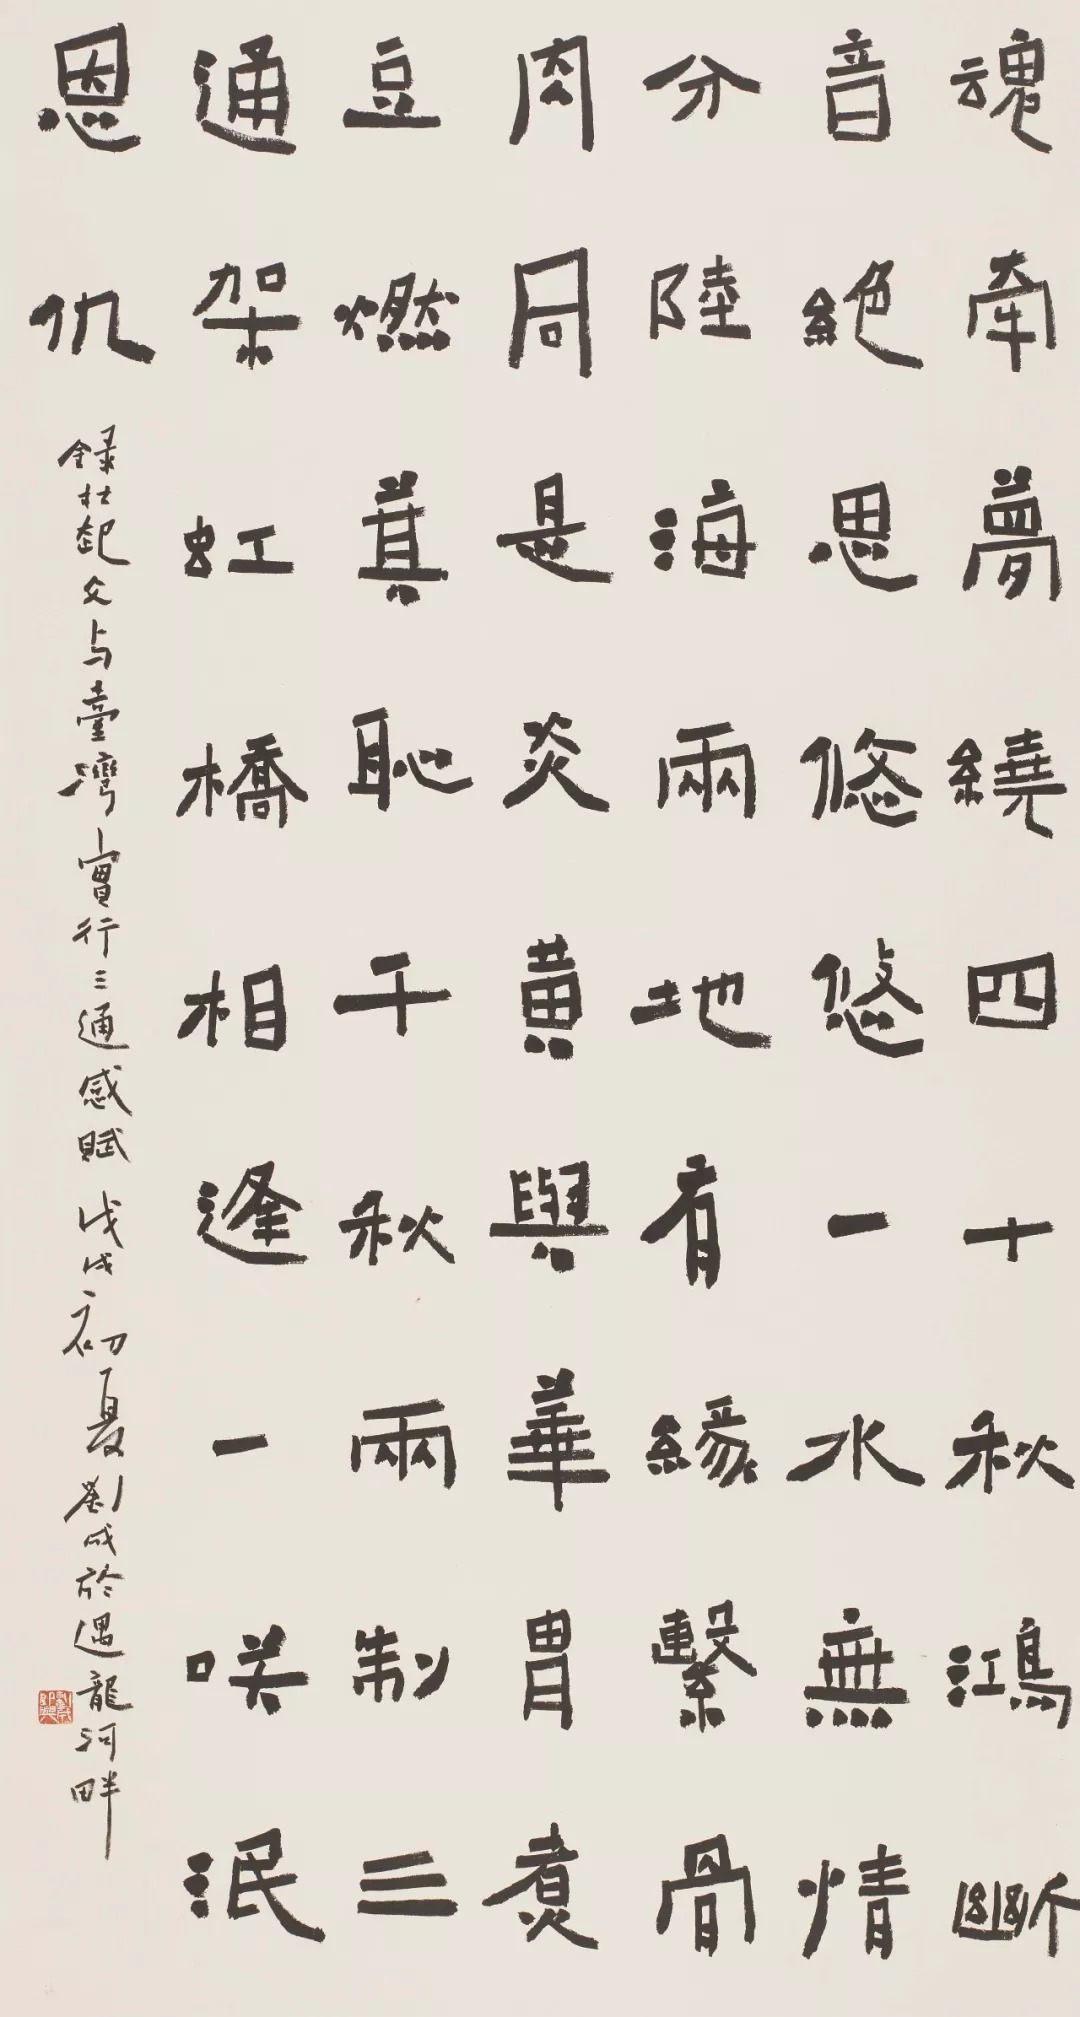 魂牽夢繞四十秋鴻斷
音絕思悠悠一水無情
分陸海兩地有緣繫骨
肉同是炎黃與華胄煮
豆燃萁恥千秋兩制三
通架虹橋相逢一咲泯
恩仇
錄杜起文与臺灣實行三通感賦 戊戌初夏劉成於遇龍河畔